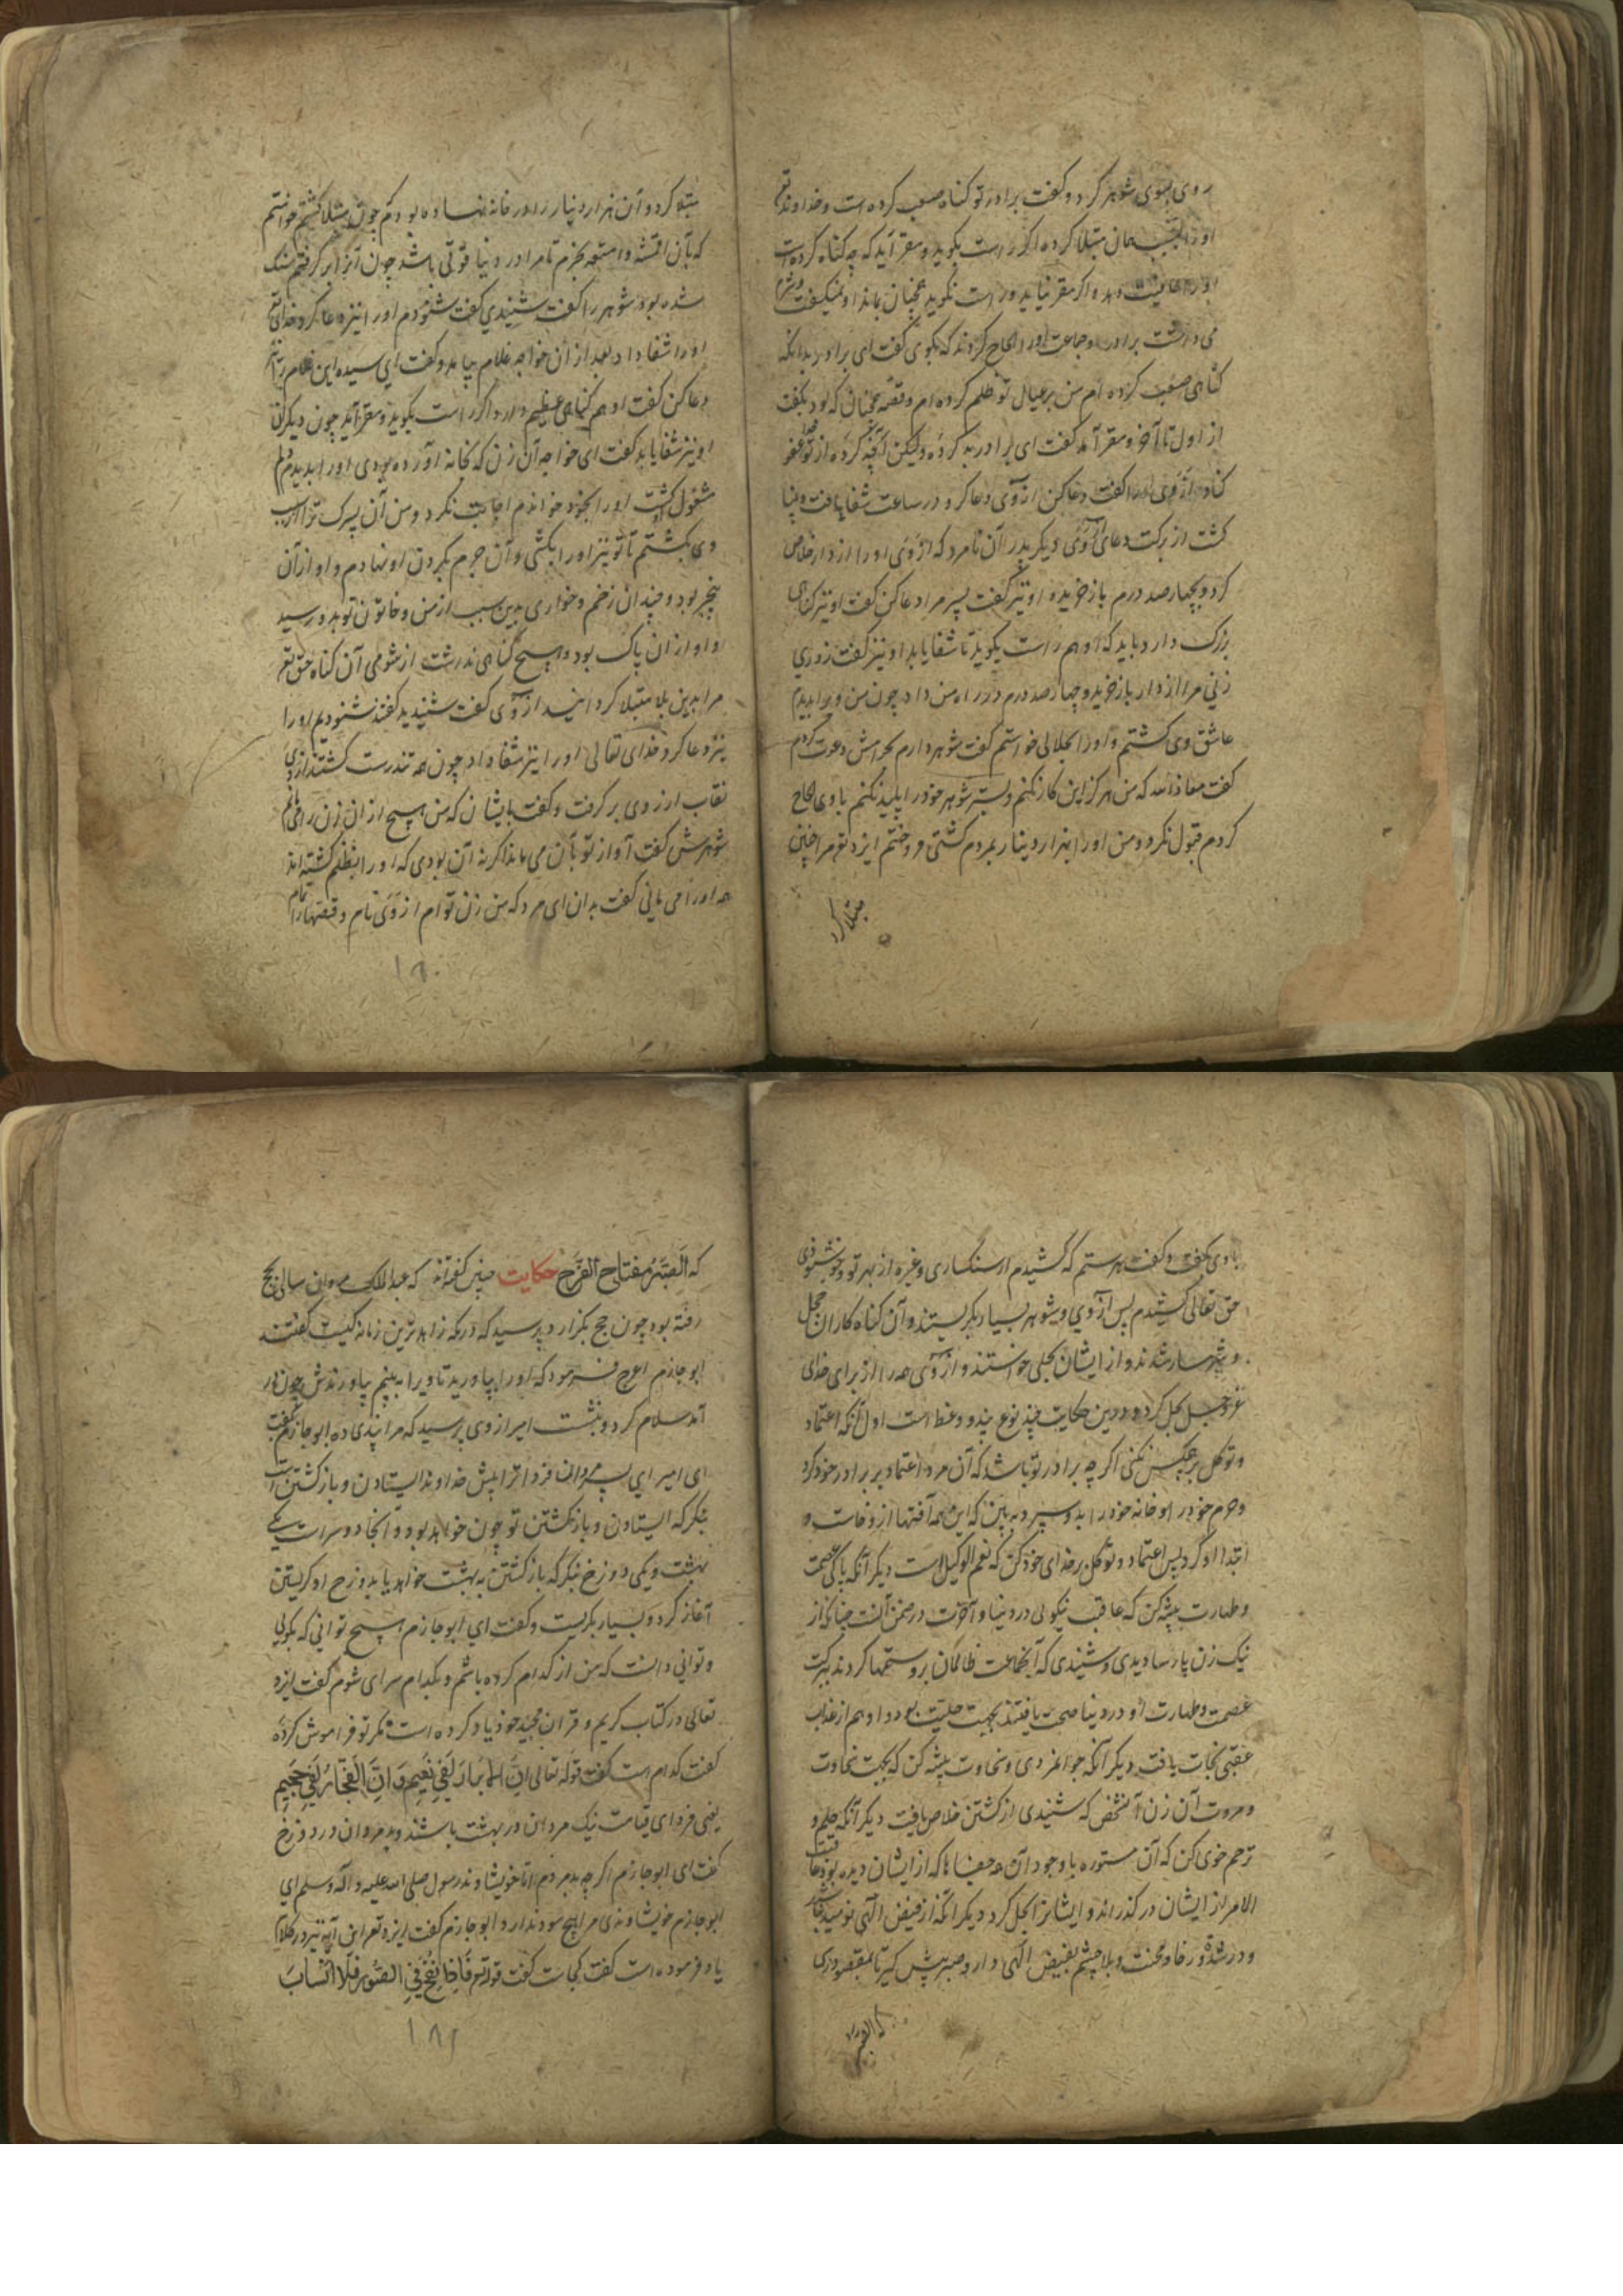 روی بسوی شوهر کرد و کفت برادر تو کناه صعب کرده است و خداوند تع
او را بسبب همان مبتلا کرده اکر راست بکوید و مقر آید که چه کناه کرده است
او را عافیت دهد و اکر مقر نیاید و راست نکوید همچنان بماند او نمیکفت و شرم
می داشت برادر و جماعت او را الحاح کردند که بکوی کفت ای برادر بدانکه
کناهی صعب کرده ام من بر عیال تو ظلم کرده ام و قصه همچنان که بود بکفت
از اول تا آخر و مقر آمد کفت ای برادر بد کرده ولیکن آنچه کرده از تو عفو
کناه ازوی را کفت دعا کن ازوی دعا کرد در ساعت شفا یافت و بینا
کشت از برکت دعای ازوی دیکر پدر آن نامرد که ازوی او را از دار خلاص
کرد و بچهارصد درم باز خریده او نیز کفت پسر مرا دعا کن کفت او نیز کناهی
بزرک دارد باید که او هم راست بکوید تا شفا یابد او نیز کفت روزی
زنی مرا از دار باز خرید و چهارصد درم در راه من داد چون من ویرا بدیدم
عاشق وی کشتم و او را بحلالی خواستم کفت شوهر دارم بحرامش دعوت کردم
کفت معاذ الله که من هرکز این کار نکنم و بستر شوهر خود را پلید نکنم با وی الحاح
کردم قبول نکرد و من او را بهزار دینار بمردم کشتی فروختم ایزد تع مرا چنین
مبتلا کرد
مبتلا کرد و آن هزار دینار زر در خانه نهاده بودم چون مبتلا کشتم خواستم
که بآن اقمشه و امتعه بخرم تا مرا در دنیا قوتی باشد چون آنرا بر کرفتم سنک
شده بود شوهر را کفت شنیدی کفت شنودم او را نیز دعا کرد خدای تع
او را شفا داد بعد از آن خواجه غلام بیامد و کفت ای سیده این غلام را نیز
دعا کن کفت او هم کناهی عظیم دارد اکر راست بکوید و مقر آید چون دیکران
او نیز شفا یابد کفت ای خواجه آن زن که بخانه آورده بودی او را بدیدم دلم
مشغول کشت او را بخود خواندم اجابت نکرد و من آن پسرک ترا از سبب
وی بکشتم تا تو نیز او را بکشی و آن جرم بکردن او نهادم و او از آن
بیخبر بود و چندان زخم و خواری بدین سبب از من و خاتون تو بدو رسید
و او از آن پاک بود و هیچ کناهی نداشت از شومی آن کناه حق تع
مرا بدین بلا مبتلا کردانید ازوی کفت شنیدید کفتند شنودیم او را
نیز دعا کرد خدای تعالی او را نیز شفا داد چون همه تندرست کشتند ازوی
نقاب از روی بر کرفت و کفت بایشان که من هیچ از آن زن را می مانم
شوهرش کفت آواز تو بآن می ماند اکر نه آن بودی که او را بظلم کشته اند
همه او را می مانی کفت بدان ای مرد که من زن توام ازوی نام و قصها را تمام
۱۸۰
با وی بکفت و کفت هر ستم که کشیدم از سنکساری و غیره از بهر تو و خوشنودی
حق تعالی کشیدم پس ازوی و شوهر بسیار بکریستند و آن کناه کاران خجل
و شرمسار شدند و از ایشان بحلی خواستند و ازوی همه را از برای خدای
عزوجل بحل کرد و درین حکایت چند نوع پند و وعظ است اول آنکه اعتماد
و توکل بر هیچکس نکنی اکر چه برادر تو باشد که آن مرد اعتماد بر برادر خود کرد
و حرم خود را و خانه خود را بدو سپرد به بین که این همه آفتها از و خاست و
ابتدا او کرد پس اعتماد و توکل بر خدای خود کن که نعم الوکیل است دیکر آنکه پاکی عصمت
و طهارت پیشه کن که عاقبت نیکوئی در دنیا و آخرت در ضمن آنست چنانکه از
نیک زن پارسا دیدی و شنیدی که آنجماعت ظالمان برو ستمها کردند ببرکت
عصمت و طهارت او در دنیا صحت یافتند بجهت حلیت بود و او هم از عذاب
عقبی نجات یافت دیکر آنکه جوانمردی و سخاوت پیشه کن که بجهت سخاوت
و مروت آن زن آنشخص که شنیدی از کشتن خلاص یافت دیکر آنکه حلم و
ترحم خوی کن که آن مستوره با وجود آن همه جفاها که از ایشان دیده بود عاقبت
الامر از ایشان در کذراند و ایشانرا بحل کرد دیکر آنکه از فیض الهی نومید مباش
و در شدة و رخا و محنت و بلا چشم بفیض الهی دار و صبر پیش کیر تا بمقصود رسی
که الصبر
که الصَّبْرُ مِفتاح الفَرَج حکایت چنین کفته اند که عبدالملک مروان سالی بحج
رفته بود چون حج بکزارد پرسید که در مکه زاهدترین زمانه کیست کفتند
ابوحازم اعرج فرمود که او را بیاورید تا ویرا به بینم بیاوردندش چون در
آمد سلام کرد و بنشست امیر از وی پرسید که مرا پندی ده ابوحازم کفت
ای امیر ای پسر مروان فردا ترا پیش خداوند ایستادن و بازکشتن است
بنکر که ایستادن و بازکشتن تو چون خواهد بود و آنجا دو سراست یکی
بهشت و یکی دوزخ بنکر که بازکشتن به بهشت خواهد یا بدوزخ او کریستن
آغاز کرد و بسیار بکریست و کفت ای ابوحازم هیچ توانی که بکوئی
و توانی دانست که من از کدام کروه باشم و بکدام سرای شوم کفت ایزد
تعالی در کتاب کریم و قرآن مجید خود یاد کرده است مکر تو فراموش کرده
کفت کدام است کفت قوله تعالی اِنَّ الابرارَ لَفی نَعیمٍ وَ اِنَّ الفُجّارَ لَفی جَحیمٍ
یعنی فردای قیامت نیک مردان در بهشت باشند و بدمردان در دوزخ
کفت ای ابوحازم اکر چه بد مردم اما خویشاوند رسول صلی الله علیه و آله وسلم ای
ابوحازم خویشاوندی مرا هیچ سود ندارد ابوحازم کفت ایزد تع این آیه نیز در کلام
یاد فرموده است کفت کجاست کفت قوله تع فَاِذا نُفِخَ فِی الصُّورِ فَلا اَنْسابَ
۱۸۱